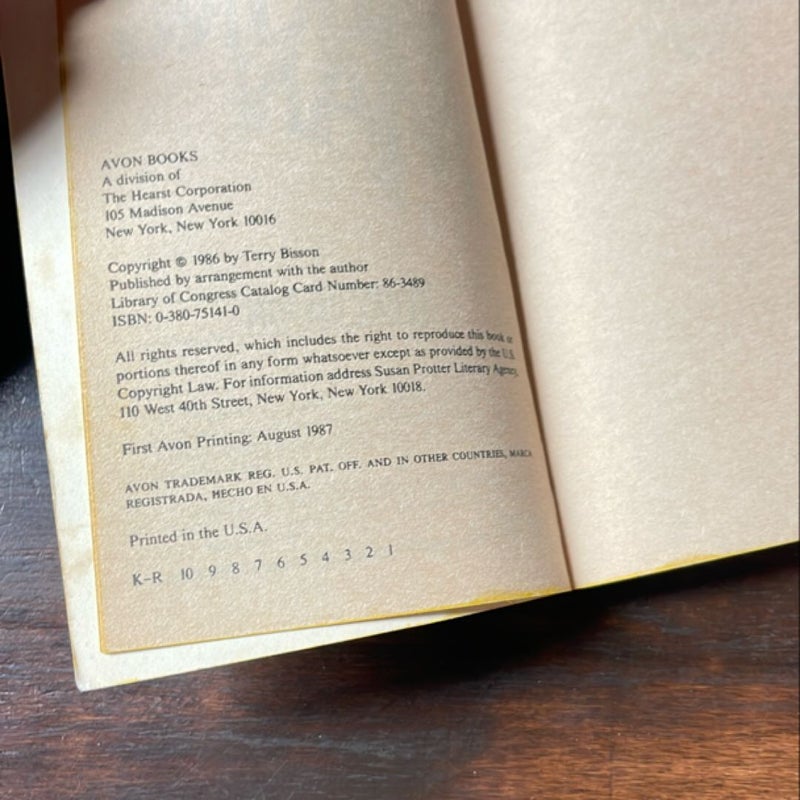 AVON BOOKS
A division of
The Hearst Corporation
105 Madison Avenue
New York, New York 10016
Copyright © 1986 by Terry Bisson
Published by arrangement with the author
Library of Congress Catalog Card Number: 86-3489
ISBN: 0-380-75141-0
All rights reserved, which includes the right to reproduce this book or
portions thereof in any form whatsoever except as provided by the U.S.
Copyright Law. For information address Susan Protter Literary Agency,
110 West 40th Street, New York, New York 10018.
First Avon Printing: August 1987
AVON TRADEMARK REG. U.S. PAT. OFF. AND IN OTHER COUNTRIES, MARCA
REGISTRADA, HECHO EN U.S.A.
Printed in the U.S.A.
K-R 10 9 8 7 6 5 4 3 2 1